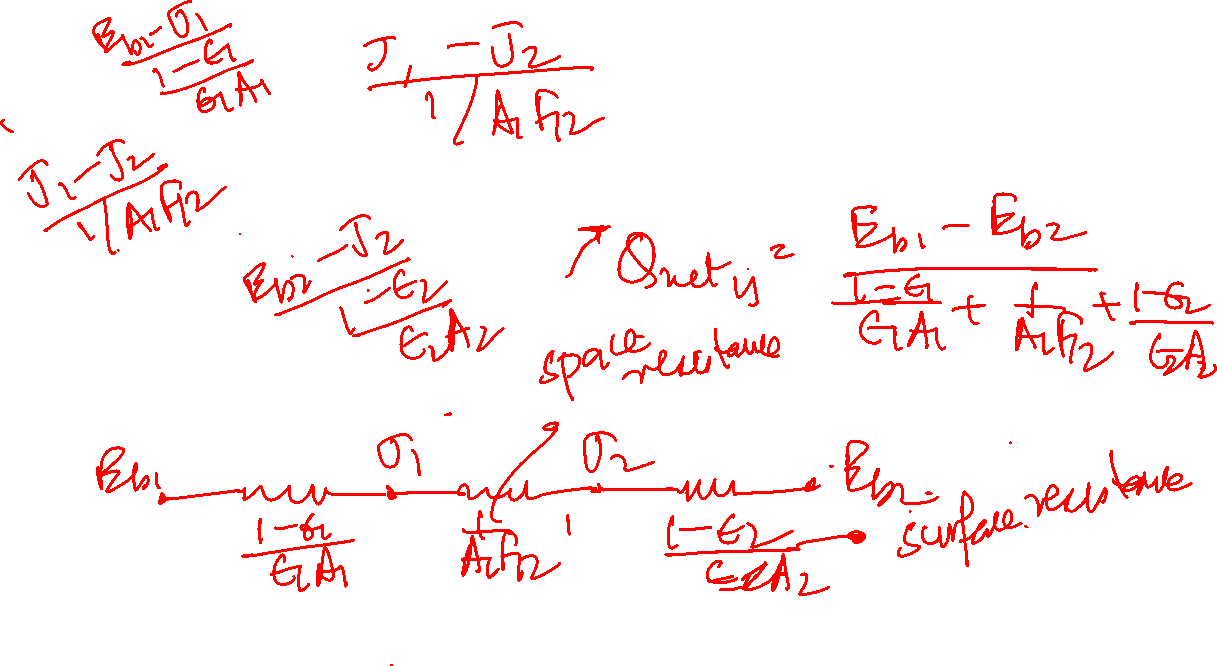 (E_{b1} - J_1) / ((1-ε_1) / (ε_1 A_1))
(J_1 - J_2) / (1 / A_1 F_{12})
(J_1 - J_2) / (1 / A_1 F_{12})
(E_{b2} - J_2) / ((1-ε_2) / (ε_2 A_2))
Q_{net} is = (E_{b1} - E_{b2}) / ((1-ε_1)/(ε_1 A_1) + 1/(A_1 F_{12}) + (1-ε_2)/(ε_2 A_2))
space resistance
E_{b1} J_1 J_2 E_{b2}
(1-ε_1)/(ε_1 A_1) 1/(A_1 F_{12}) (1-ε_2)/(ε_2 A_2) surface resistance